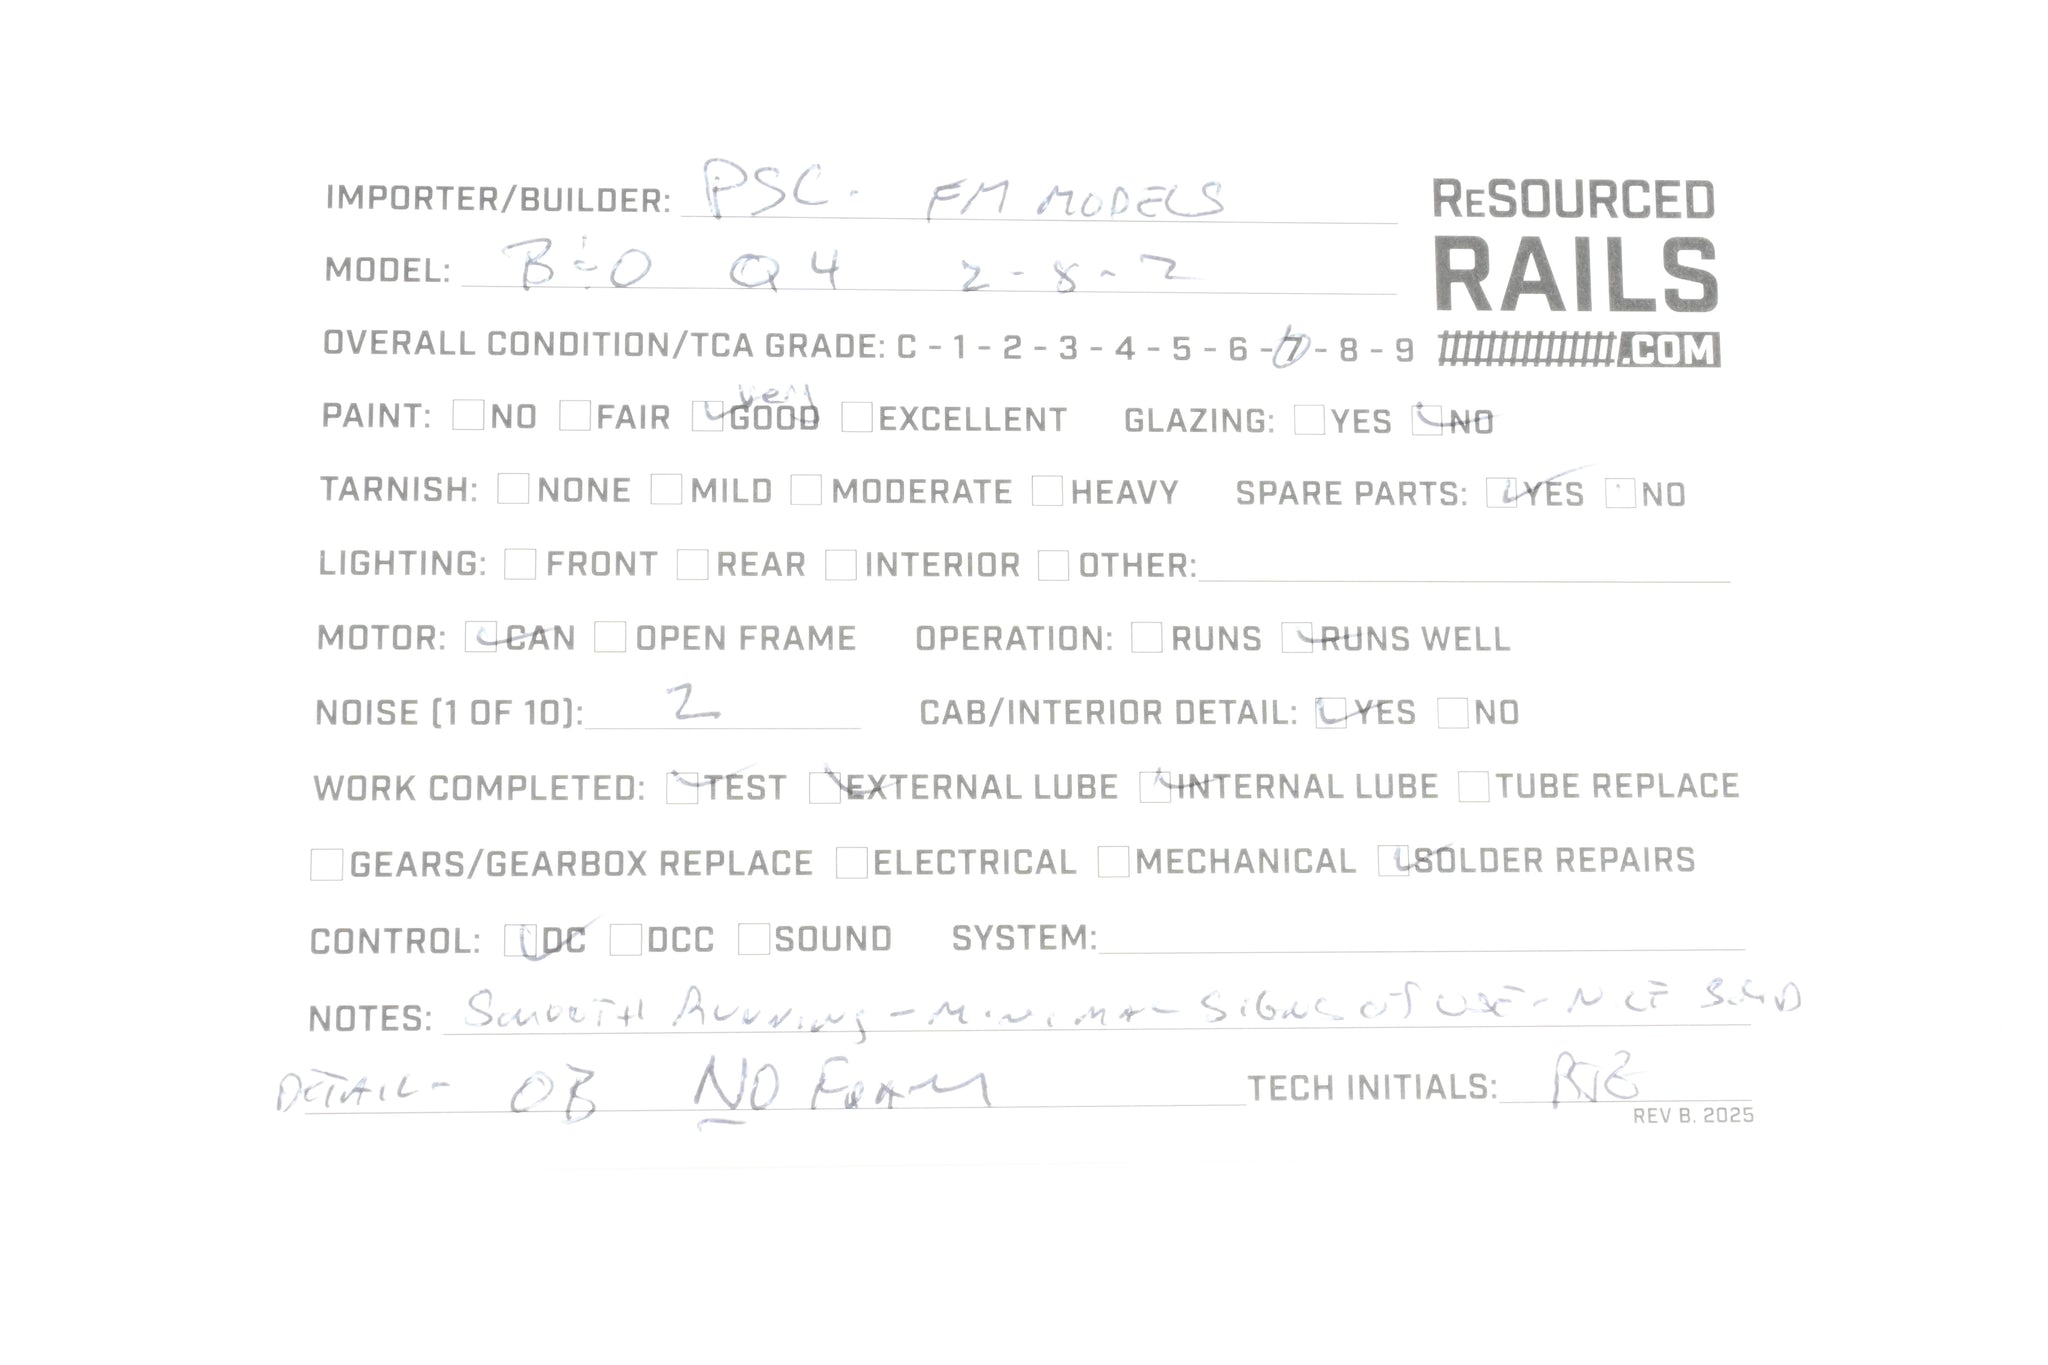 IMPORTER/BUILDER: PSC - FM MODELS
RESOURCED
RAILS
.COM
MODEL: B&O Q4 2-8-2
OVERALL CONDITION/TCA GRADE: C - 1 - 2 - 3 - 4 - 5 - 6 - 7 - 8 - 9
very
PAINT: NO FAIR GOOD EXCELLENT GLAZING: YES NO
TARNISH: NONE MILD MODERATE HEAVY SPARE PARTS: YES NO
LIGHTING: FRONT REAR INTERIOR OTHER:
MOTOR: CAN OPEN FRAME OPERATION: RUNS RUNS WELL
NOISE (1 OF 10): 2 CAB/INTERIOR DETAIL: YES NO
WORK COMPLETED: TEST EXTERNAL LUBE INTERNAL LUBE TUBE REPLACE
GEARS/GEARBOX REPLACE ELECTRICAL MECHANICAL SOLDER REPAIRS
CONTROL: DC DCC SOUND SYSTEM:
NOTES: SMOOTH RUNNING - MINIMAL SIGNS OF USE - NICE
DETAIL - OB NO FOAM TECH INITIALS:
REV B. 2025